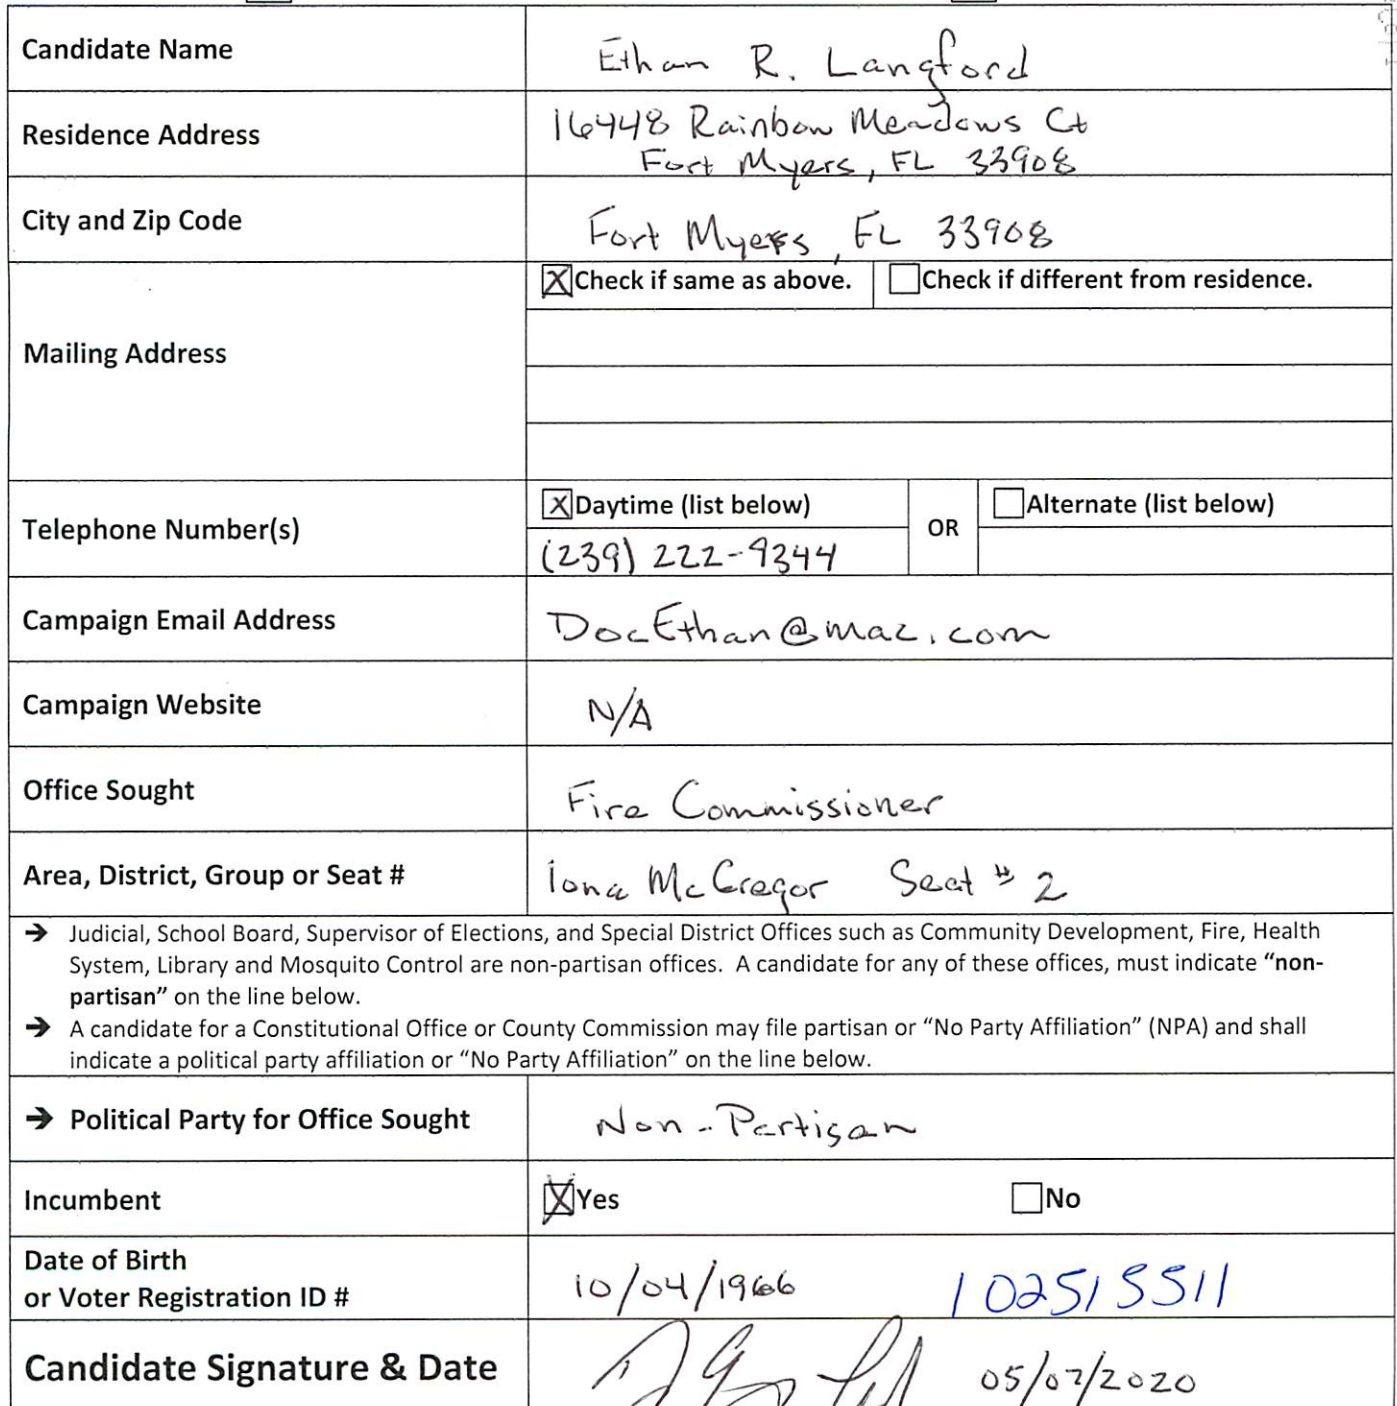 Candidate Name
Ethan R. Langford
Residence Address
16448 Rainbow Meadows Ct
Fort Myers, FL 33908
City and Zip Code
Fort Myers, FL 33908
Mailing Address
X Check if same as above.
Check if different from residence.
Telephone Number(s)
X Daytime (list below)
(239) 222-9344
OR
Alternate (list below)
Campaign Email Address
DocEthan@mac.com
Campaign Website
N/A
Office Sought
Fire Commissioner
Area, District, Group or Seat #
Iona McGregor Seat # 2
→ Judicial, School Board, Supervisor of Elections, and Special District Offices such as Community Development, Fire, Health
System, Library and Mosquito Control are non-partisan offices. A candidate for any of these offices, must indicate “non-
partisan” on the line below.
→ A candidate for a Constitutional Office or County Commission may file partisan or “No Party Affiliation” (NPA) and shall
indicate a political party affiliation or “No Party Affiliation” on the line below.
→ Political Party for Office Sought
Non-Partisan
Incumbent
X Yes
No
Date of Birth
or Voter Registration ID #
10/04/1966 102515511
Candidate Signature & Date
05/07/2020